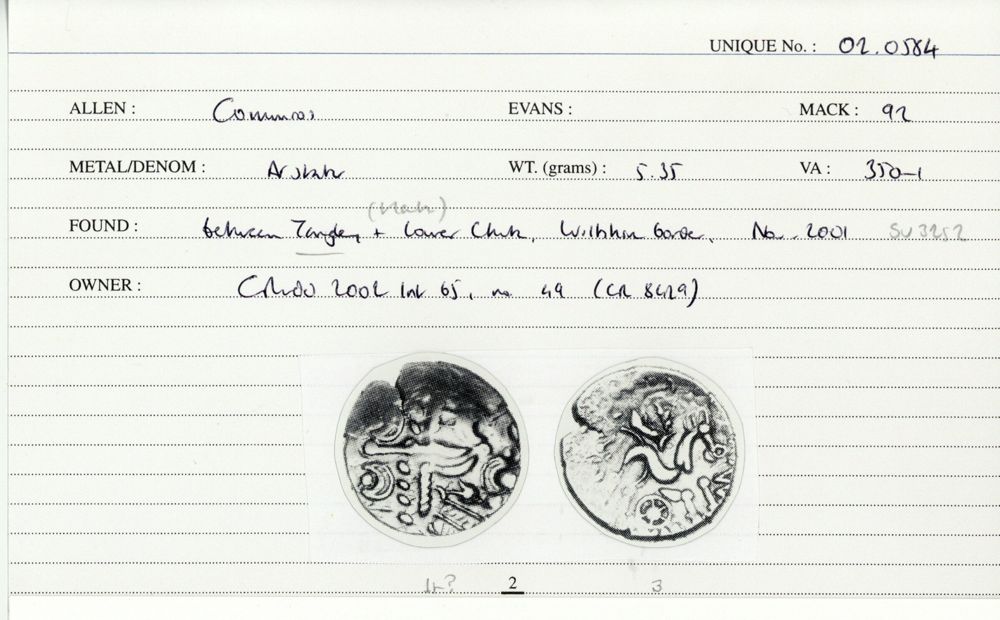 UNIQUE No. : 02.0584
ALLEN : Commios EVANS : MACK : 92
METAL/DENOM : WT. (grams) : 5.35 VA : 350-1
FOUND : between Tangley + Lower Chute, Wiltshire border, Nov. 2001 SU 3252
OWNER : 2002 65, no 49 (CR 8429)
2 3